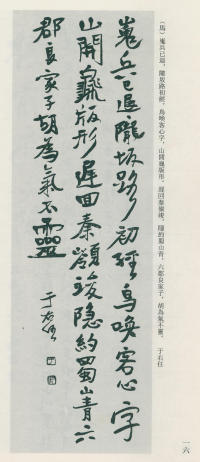 (馬)嵬兵已退,隴坂路初經,鳥喚客心字,山開龜版形,遲回秦嶺後,隱約蜀山青,六郡良家子,胡為氣不靈。 于右任
嵬兵已退隴坂路初經鳥喚客心字
山開龜版形遲回秦嶺後隱約蜀山青六
郡良家子胡為氣不靈
于右任
一六